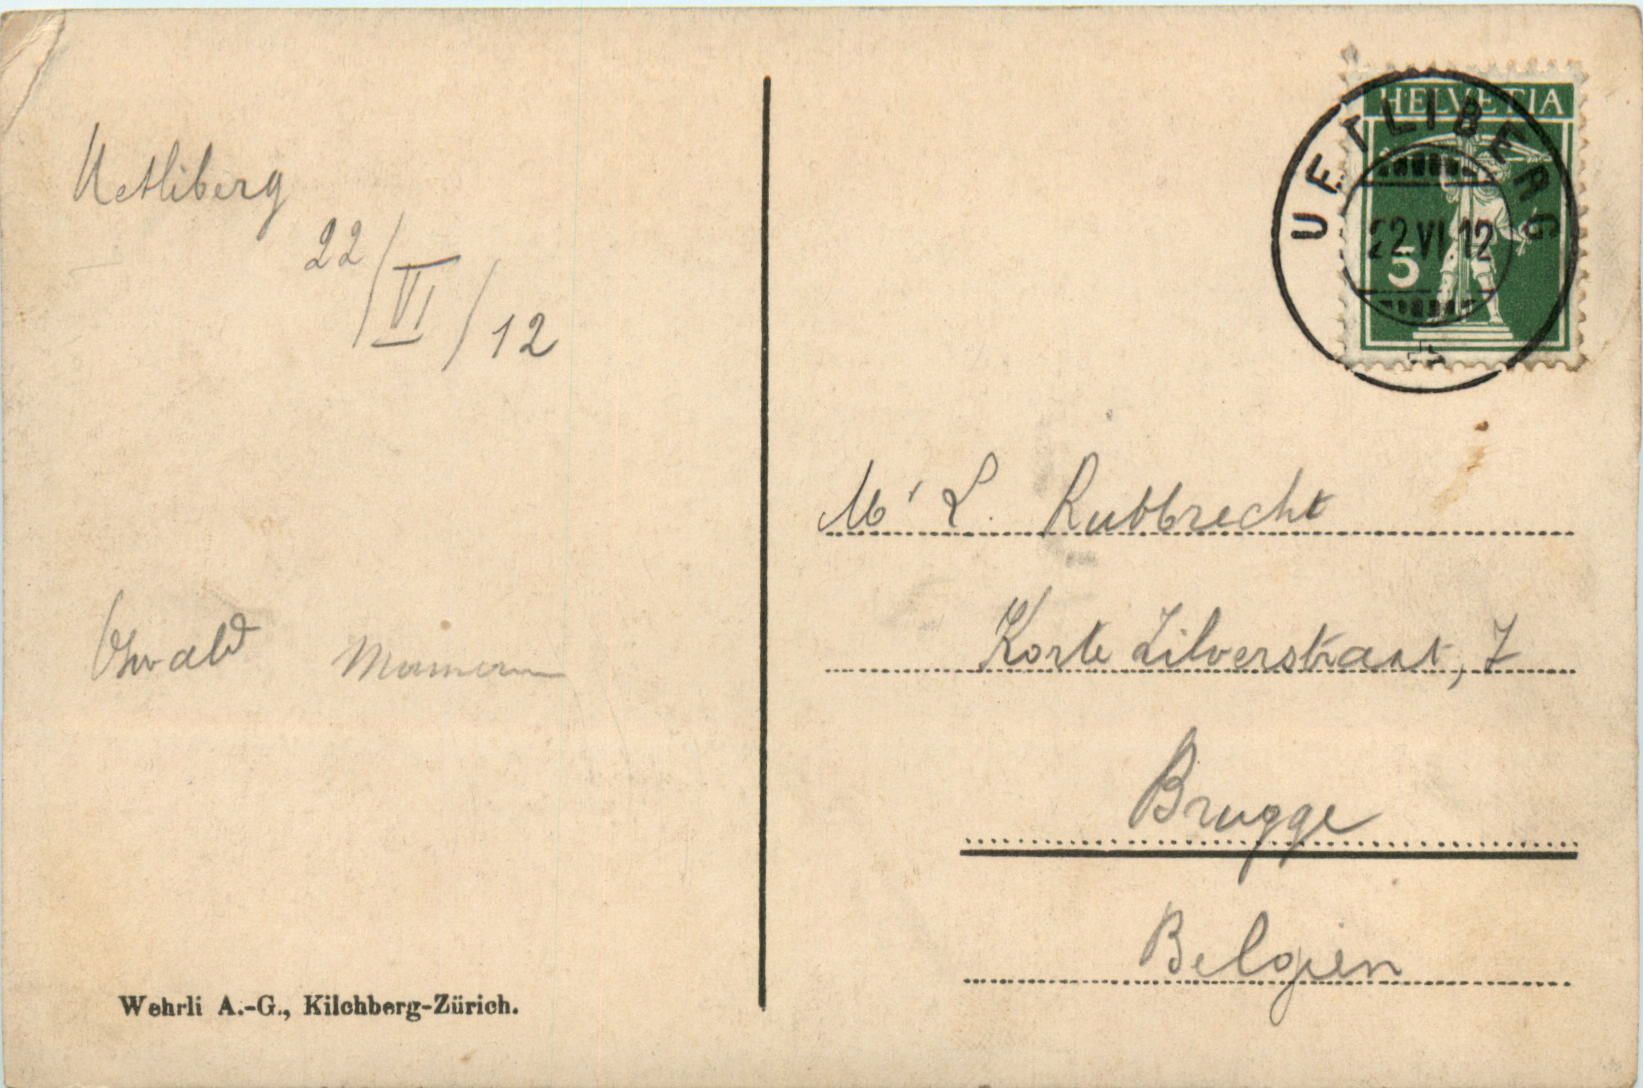 Uetliberg
22/VI/12
Oswald
Wehrli A.-G., Kilchberg-Zürich.
HELVETIA
5
UETLIBERG
22.VI.12
Mr L. Rubbrecht
Korte Zilverstraat, 7
Brugge
Belgien